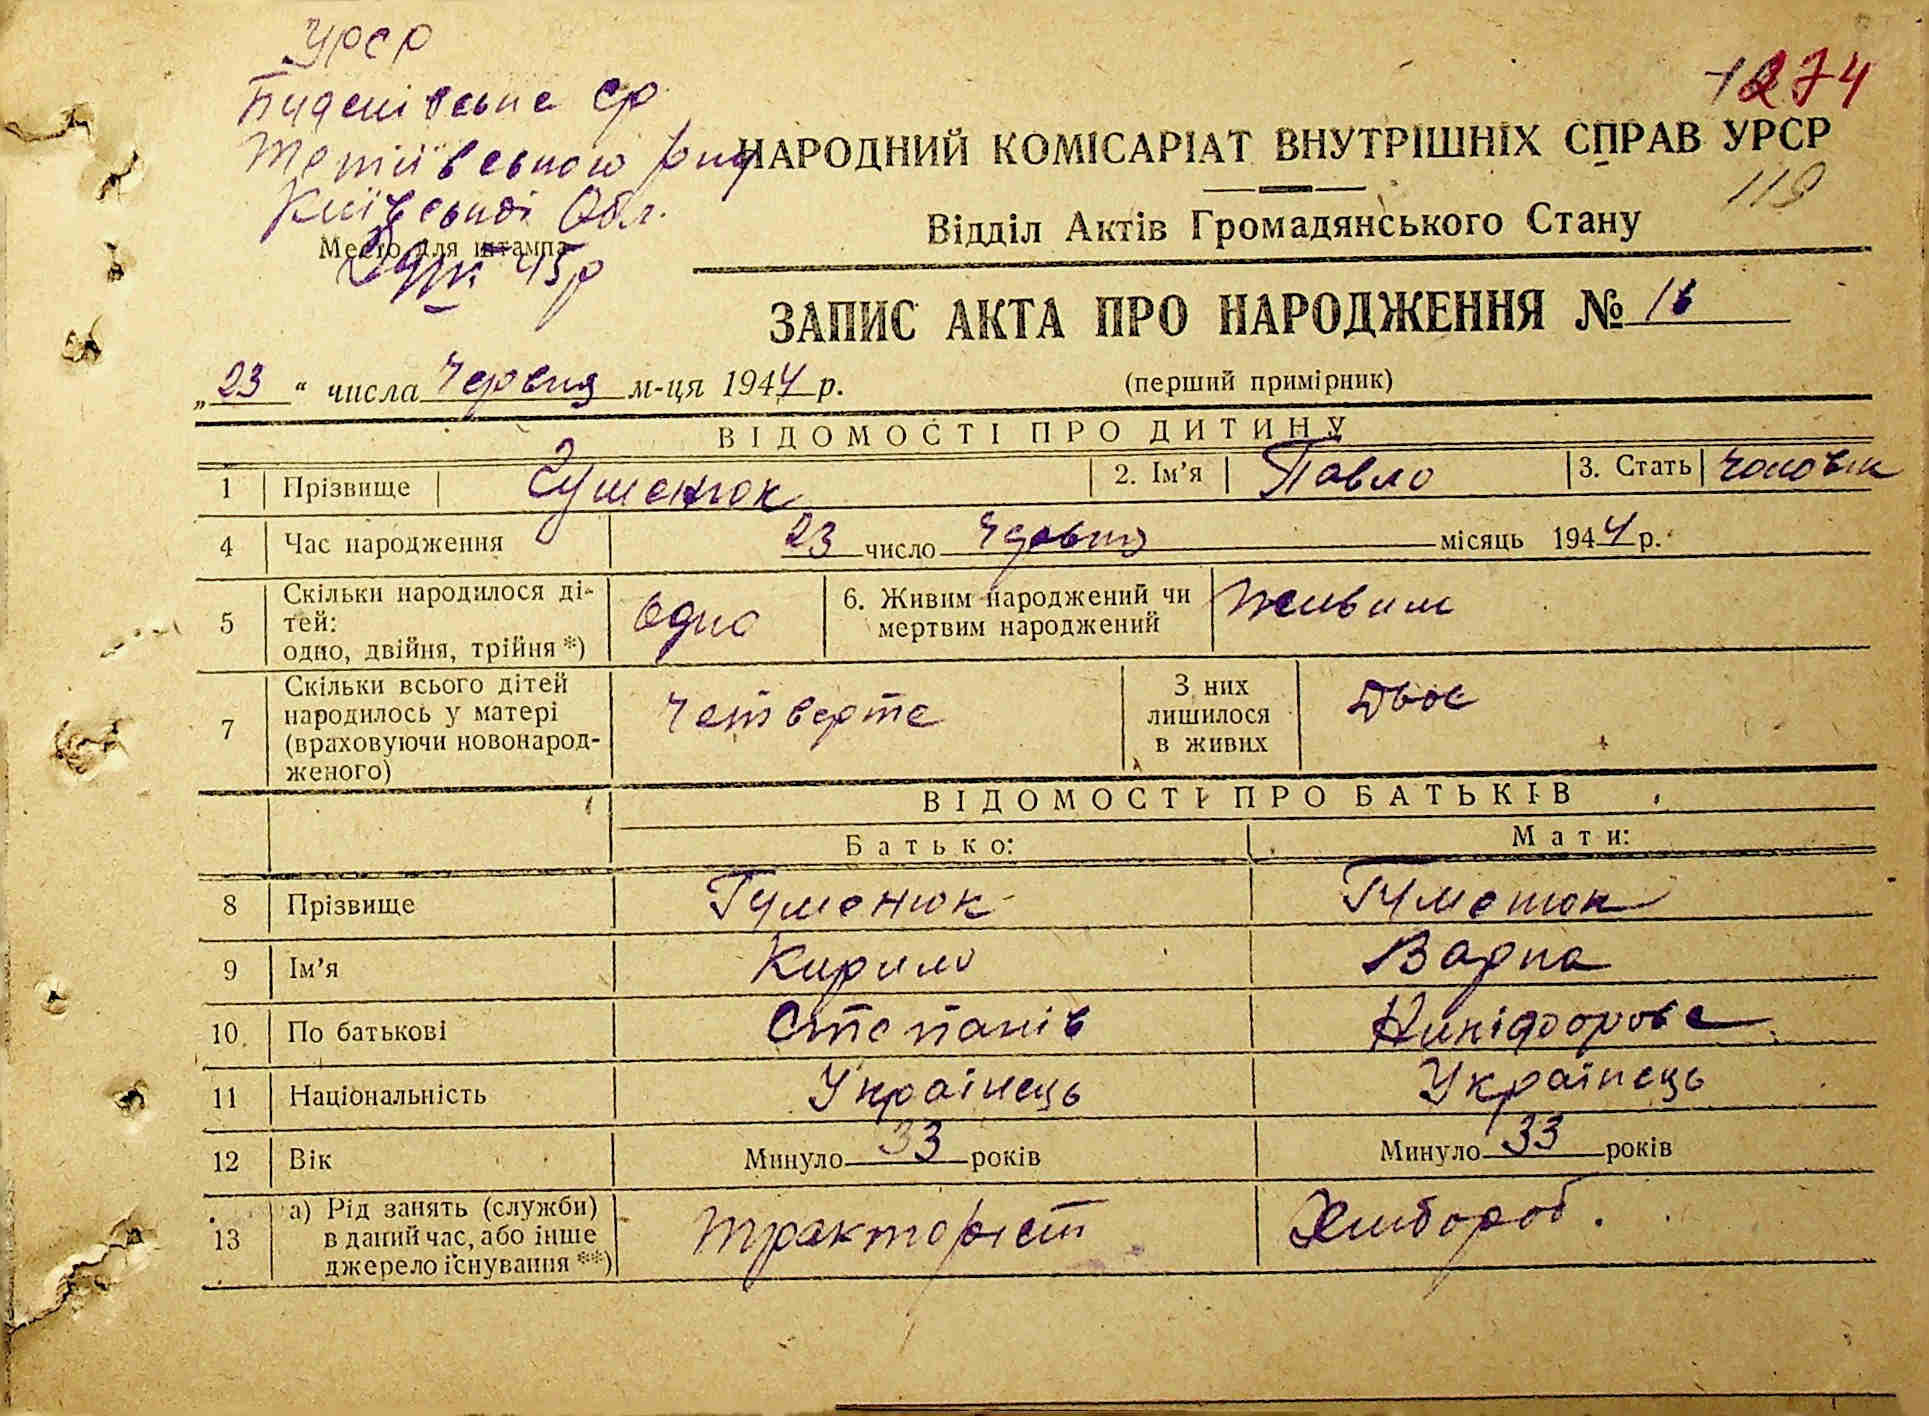 УРСР
ср
Тетіївського р-ну
Київської Обл.
Место для штампа
45р
274
НАРОДНИЙ КОМІСАРІАТ ВНУТРІШНІХ СПРАВ УРСР
119
Відділ Актів Громадянського Стану
ЗАПИС АКТА ПРО НАРОДЖЕННЯ № 16
„23“ числа Червня м-ця 1944 р. (перший примірник)
ВІДОМОСТІ ПРО ДИТИНУ
1 Прізвище Гуменюк 2. Ім'я Павло 3. Стать Чоловік
4 Час народження 23 число Червня місяць 1944 р.
5 Скільки народилося ді-
тей:
одно, двійня, трійня *) Одно 6. Живим народжений чи
мертвим народжений Живим
7 Скільки всього дітей
народилось у матері
(враховуючи новонарод-
женого) Четверте З них
лишилося
в живих Двоє
ВІДОМОСТІ ПРО БАТЬКІВ
Батько: Мати:
8 Прізвище Гуменюк Гуменюк
9 Ім'я Кирило Варка
10. По батькові Степанів Никіфорове
11 Національність Українець Українець
12 Вік Минуло 33 років Минуло 33 років
13 а) Рід занять (служби)
в даний час, або інше
джерело існування **) Тракторіст Хлибороб.